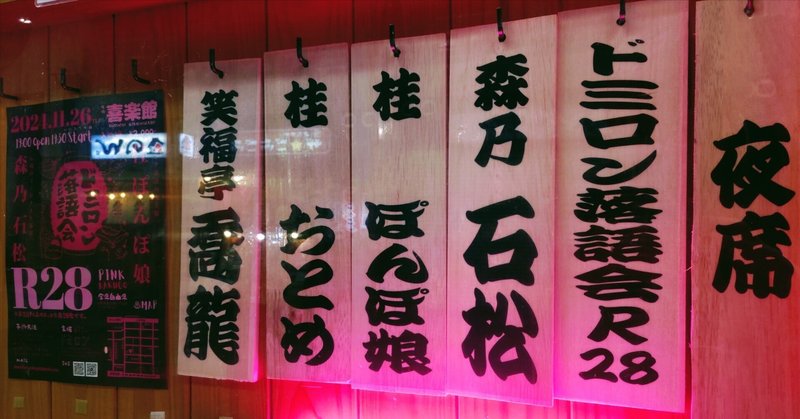 夜席
ドミロン落語会R28
森乃 石松
桂 ぽんぽ娘
桂 おとめ
笑福亭 喬龍
2024.11.26
喜楽館
Open
Start
ぽんぽ娘
ドミロン
落語会
森乃石松
R28
PINK
RAKUGO
MAP